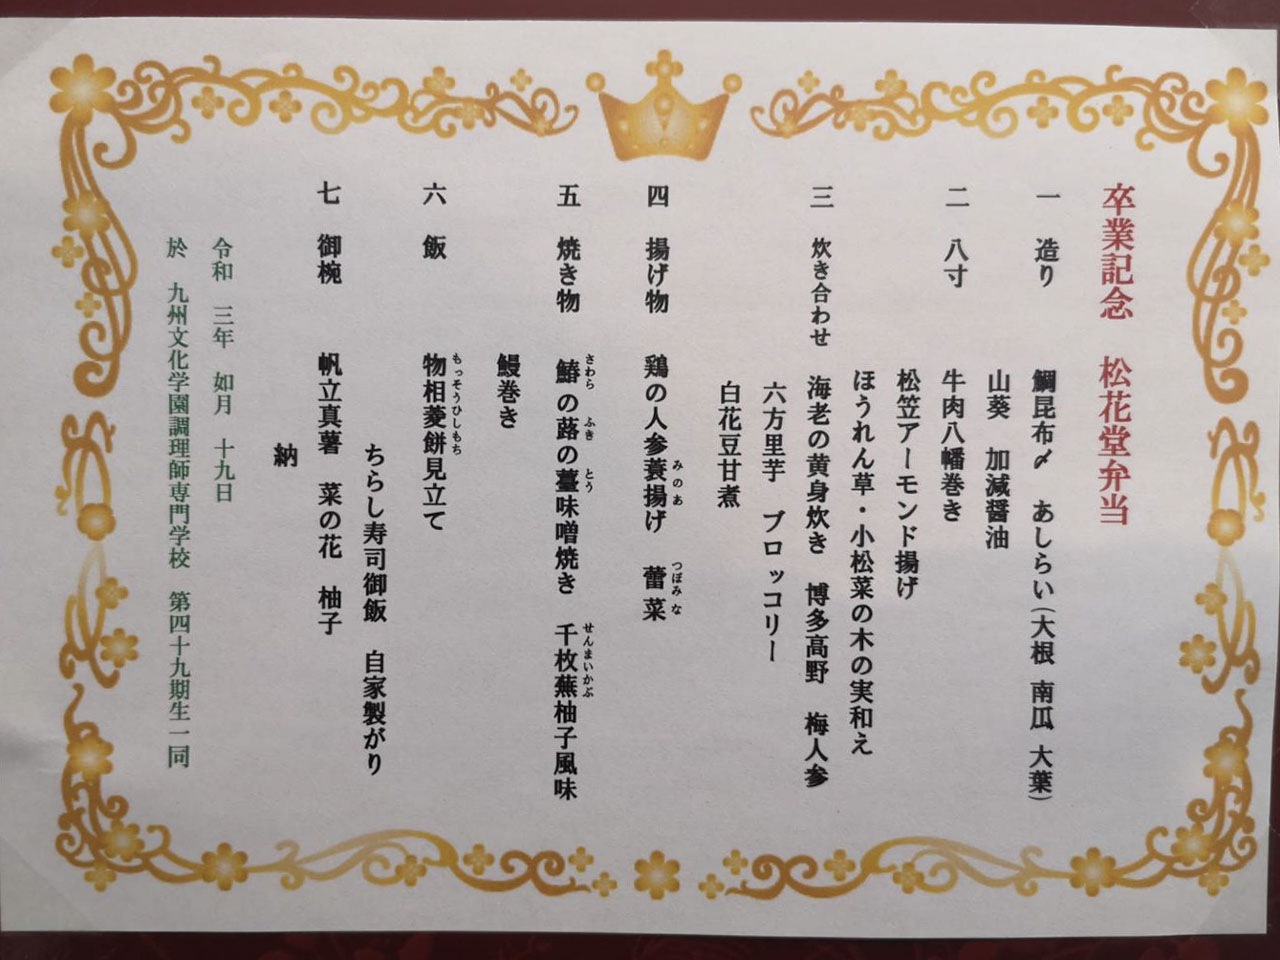 卒業記念　松花堂弁当
一　造り　鯛昆布〆　あしらい(大根 南瓜 大葉)
山葵　加減醤油
二　八寸　牛肉八幡巻き
松笠アーモンド揚げ
ほうれん草・小松菜の木の実和え
三　炊き合わせ　海老の黄身炊き　博多高野　梅人参
六方里芋　ブロッコリー
白花豆甘煮
四　揚げ物　鶏の人参蓑揚げ　蕾菜
みのあ　つぼみな
五　焼き物　鰆の蕗の薹味噌焼き　千枚蕪柚子風味
さわら　ふき　とう　せんまいかぶ
鰻巻き
六　飯　物相菱餅見立て
もっそうひしもち
ちらし寿司御飯　自家製がり
七　御椀　帆立真薯　菜の花　柚子
納
令和　三年　如月　十九日
於　九州文化学園調理師専門学校　第四十九期生一同